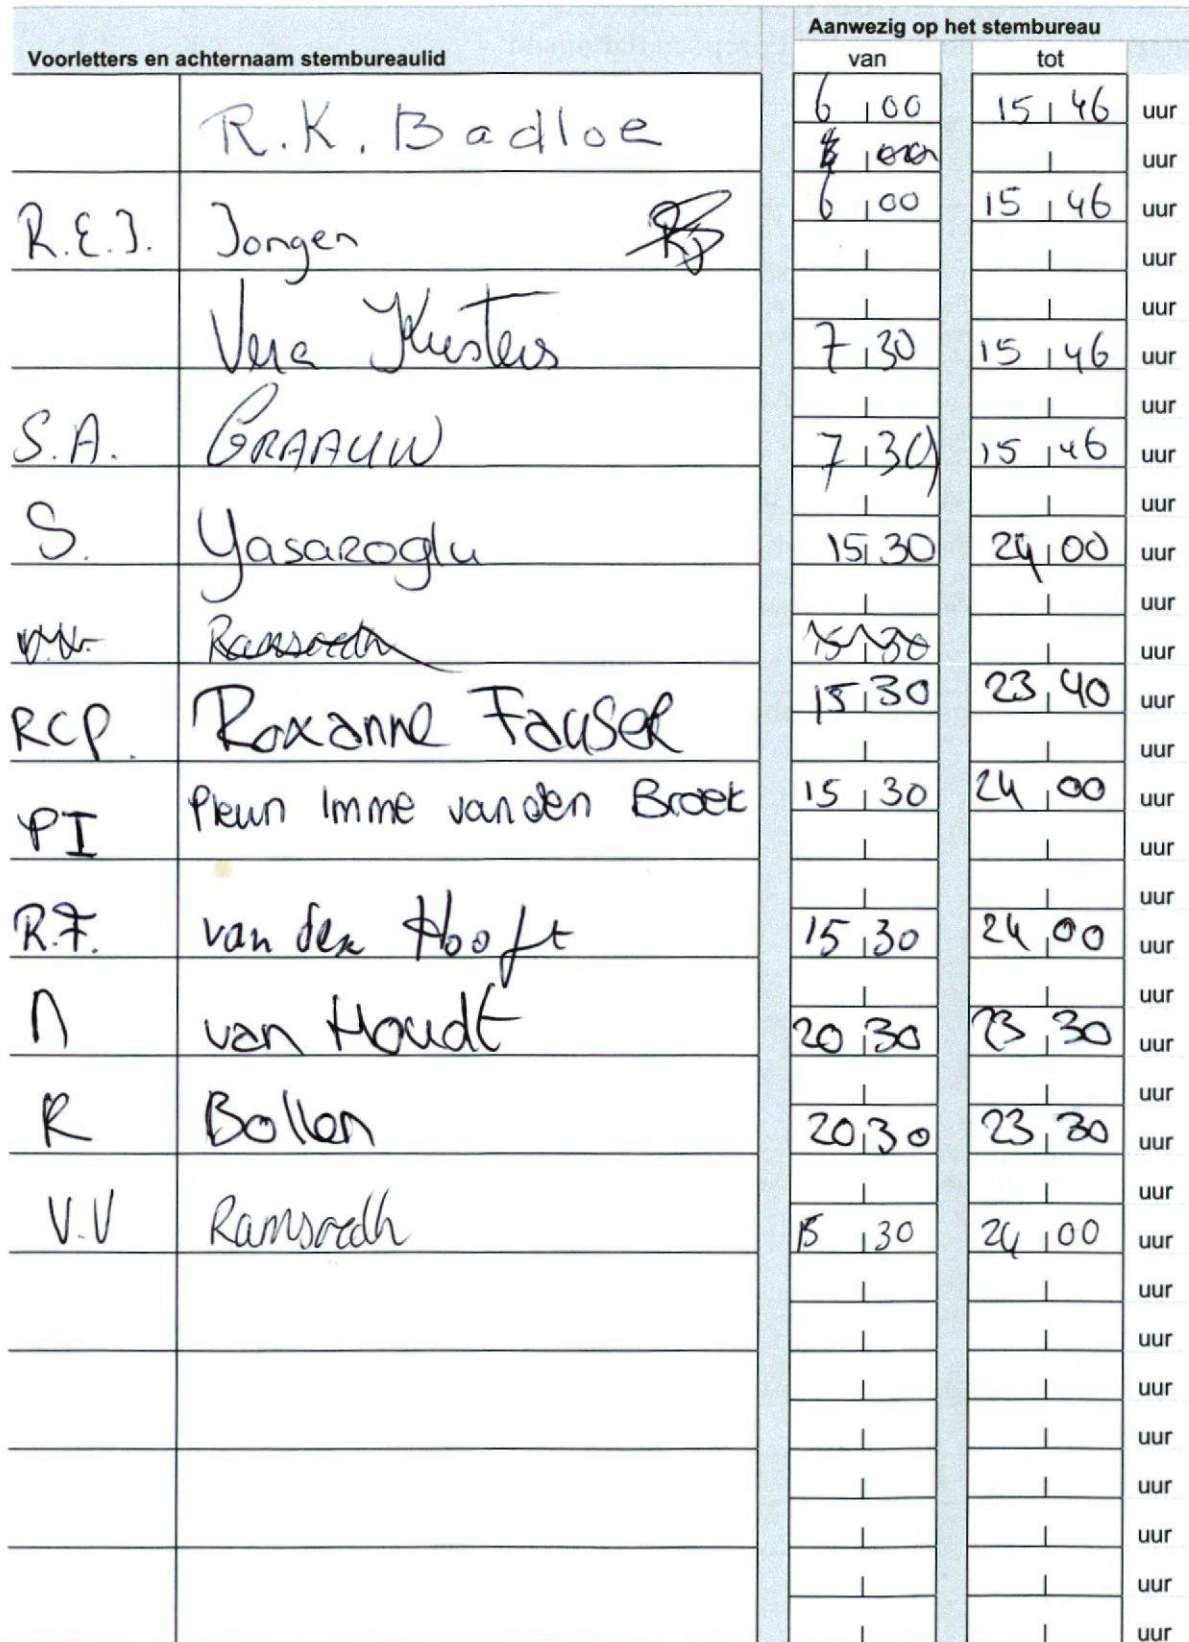 Aanwezig op het stembureau
Voorletters en achternaam stembureaulid van tot
R.K. Badloe 6 00 15 46 uur
uur
R.E.J. Jongen 6 00 15 46 uur
uur
uur
Vera Kusters 7 30 15 46 uur
uur
S.A. GRAAUW 7 30 15 46 uur
uur
S. Yasaroglu 15 30 24 00 uur
uur
V.V. Ramsoedh 15 30 uur
RCP. Roxanne Fauser 15 30 23 40 uur
uur
PI Pleun Imme van den Broek 15 30 24 00 uur
uur
uur
R.F. van der Hooft 15 30 24 00 uur
uur
n van Houdt 20 30 23 30 uur
uur
R Bollen 20 30 23 30 uur
uur
V.V Ramsoedh 15 30 24 00 uur
uur
uur
uur
uur
uur
uur
uur
uur